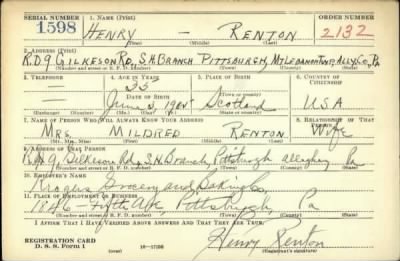 SERIAL NUMBER 1. NAME (Print) ORDER NUMBER
1598 HENRY — RENTON 2132
(First) (Middle) (Last)
2. ADDRESS (Print)
R.D.9 GILKESON RD, S.H. BRANCH PITTSBURGH, MT. LEBANON TWP, ALLY. CO. PA
(Number and street or R. F. D. number) (Town) (County) (State)
3. TELEPHONE 4. AGE IN YEARS 5. PLACE OF BIRTH 6. COUNTRY OF CITIZENSHIP
— 35 Scotland USA
DATE OF BIRTH (Town or county)
June 3, 1905
(Exchange) (Number) (Mo.) (Day) (Yr.) (State or country)
7. NAME OF PERSON WHO WILL ALWAYS KNOW YOUR ADDRESS 8. RELATIONSHIP OF THAT PERSON
MRS. MILDRED RENTON Wife
(Mr., Mrs., Miss) (First) (Middle) (Last)
9. ADDRESS OF THAT PERSON
R.D.9 Gilkeson Rd, S.H. Branch, Pittsburgh Allegheny Pa
(Number and street or R. F. D. number) (Town) (County) (State)
10. EMPLOYER'S NAME
Krogers Grocery and Baking Co.
11. PLACE OF EMPLOYMENT OR BUSINESS
1846 - Fifth Ave, Pittsburgh, Pa
(Number and street or R. F. D. number) (Town) (County) (State)
I AFFIRM THAT I HAVE VERIFIED ABOVE ANSWERS AND THAT THEY ARE TRUE.
REGISTRATION CARD Henry Renton
D. S. S. Form 1 16—17105 (Registrant's signature)